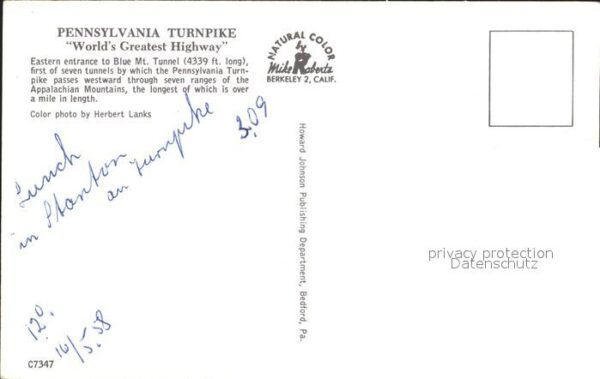 PENNSYLVANIA TURNPIKE
"World's Greatest Highway"
Eastern entrance to Blue Mt. Tunnel (4339 ft. long),
first of seven tunnels by which the Pennsylvania Turn-
pike passes westward through seven ranges of the
Appalachian Mountains, the longest of which is over
a mile in length.
Color photo by Herbert Lanks
NATURAL COLOR
by
Mike Roberts
BERKELEY 2, CALIF.
Lunch
in Stanton
on Turnpike
3.09
Howard Johnson Publishing Department, Bedford, Pa.
privacy protection
Datenschutz
C7347